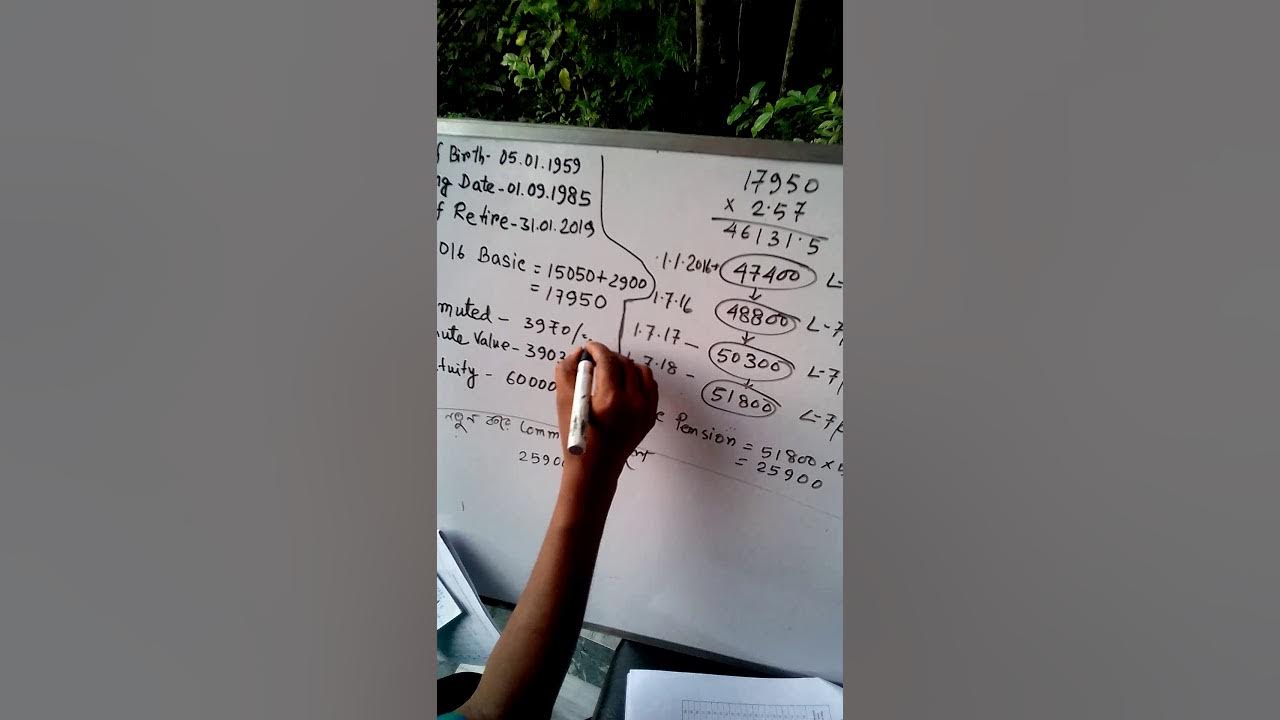 f Birth- 05.01.1959
ng Date-01.09.1985
f Retire-31.01.2019
016 Basic = 15050+2900
= 17950
muted - 3970/-
ute Value- 3903
tuity - 60000
17950
x 2.57
46131.5
1.1.2016 47400 L-
1.7.16 48800 L-7
1.7.17 - 50300 L-7
7.18 - 51800 L-7
Pension = 51800 x
= 25900
নতুন Comm
2590